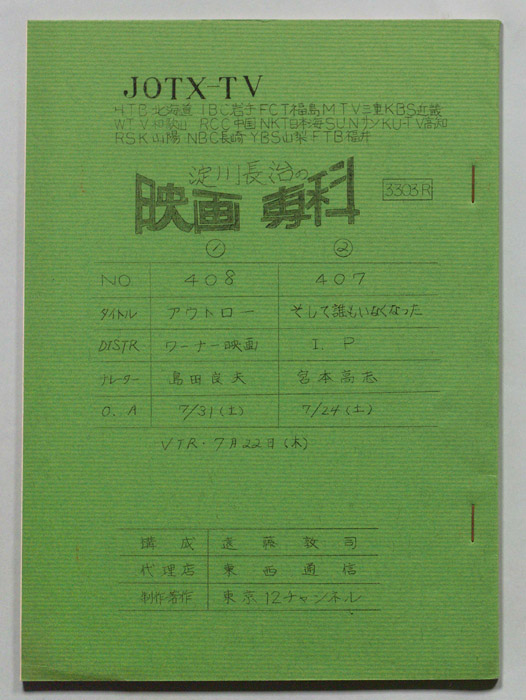 JOTX-TV
HTB北海道 IBC岩手 FCT福島 MTV三重 KBS近畿
WTV和歌山 RCC中国 NKT日本海 SUNサン KUTV高知
RSK山陽 NBC長崎 YBS山梨 FTB福井
淀川長治の
映画専科
3303R
① ②
NO 408 407
タイトル アウトロー そして誰もいなくなった
DISTR ワーナー映画 I. P
ナレーター 島田良夫 宮本高志
O. A 7/31(土) 7/24(土)
VTR・7月22日(木)
構成 遠藤敦司
代理店 東西通信
制作著作 東京12チャンネル